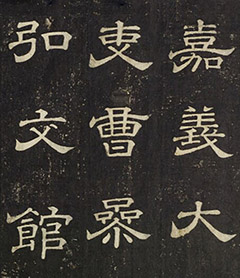 嘉義大
吏曹參
弘文館